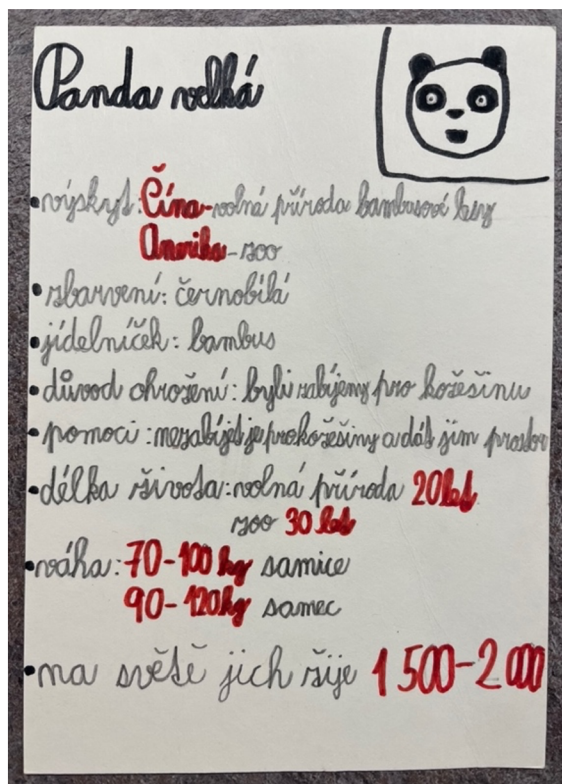 Panda velká
•výskyt: Čína-volná příroda bambusové lesy
Amerika-zoo
•zbarvení: černobílá
•jídelníček: bambus
•důvod ohrožení: byli zabíjeny pro kožešinu
•pomoci: nezabíjet je pro kožešiny a dát jim prostor
•délka života: volná příroda 20 let
zoo 30 let
•váha: 70-100 kg samice
90-120kg samec
•na světě jich žije 1 500-2 000